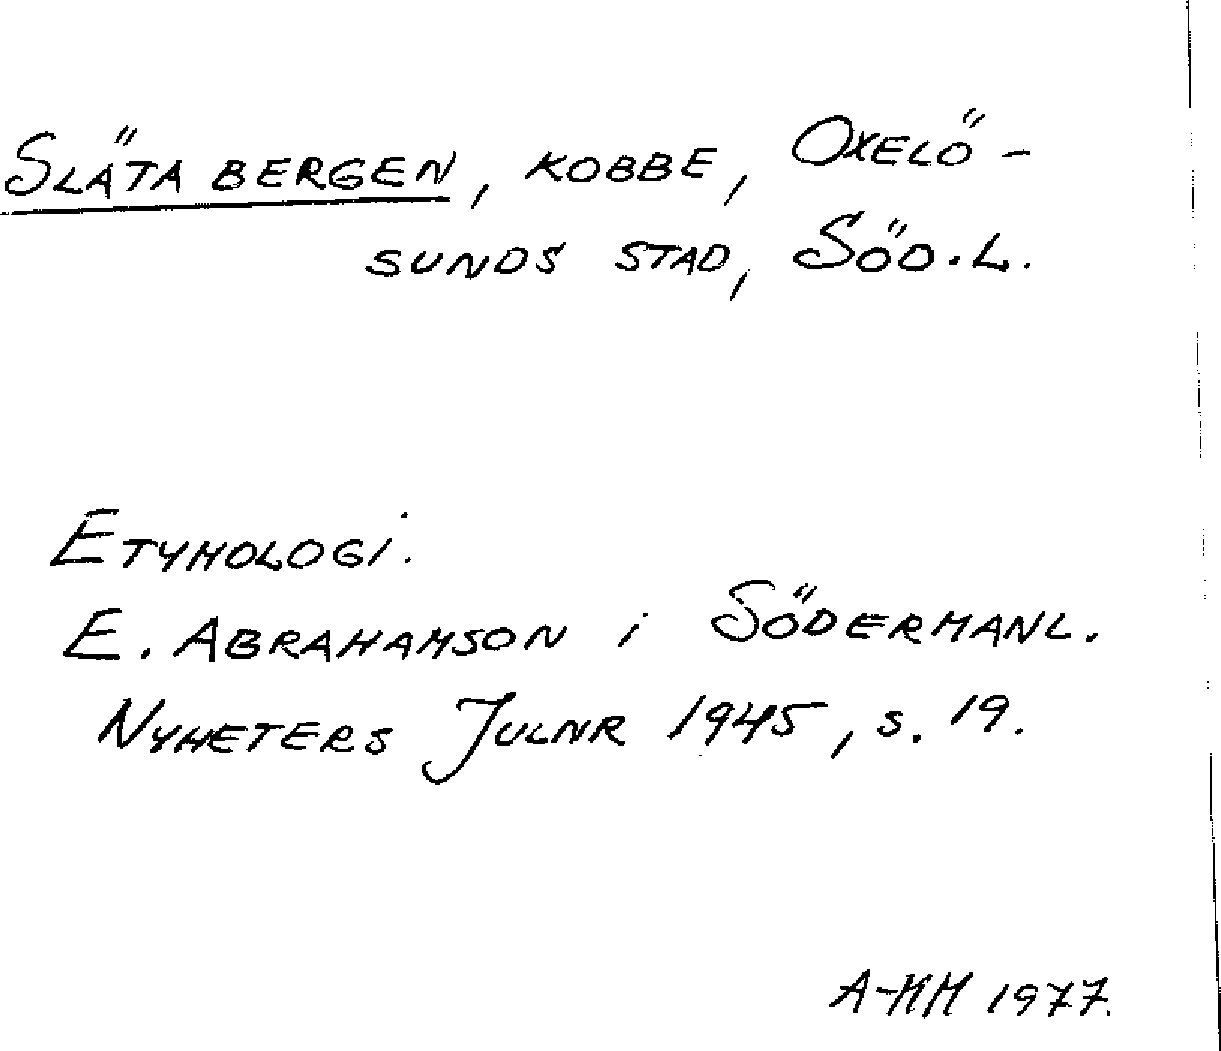 Släta bergen, kobbe, Oxelö-
sunds stad, Söd.l.
Etymologi.
E. Abrahamson i Södermanl.
Nyheters Julnr 1945, s. 19.
A-MM 1977.